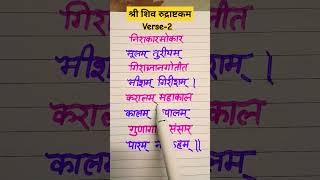 श्री शिव रुद्राष्टकम
Verse-2
निराकारमोंकार
मूलम् तुरीयम्
गिराज्ञानगोतीत
मीशम् गिरीशम् ।
करालम् महाकाल
कालम् पालम्
संसार
पारम् ऽहम् ॥